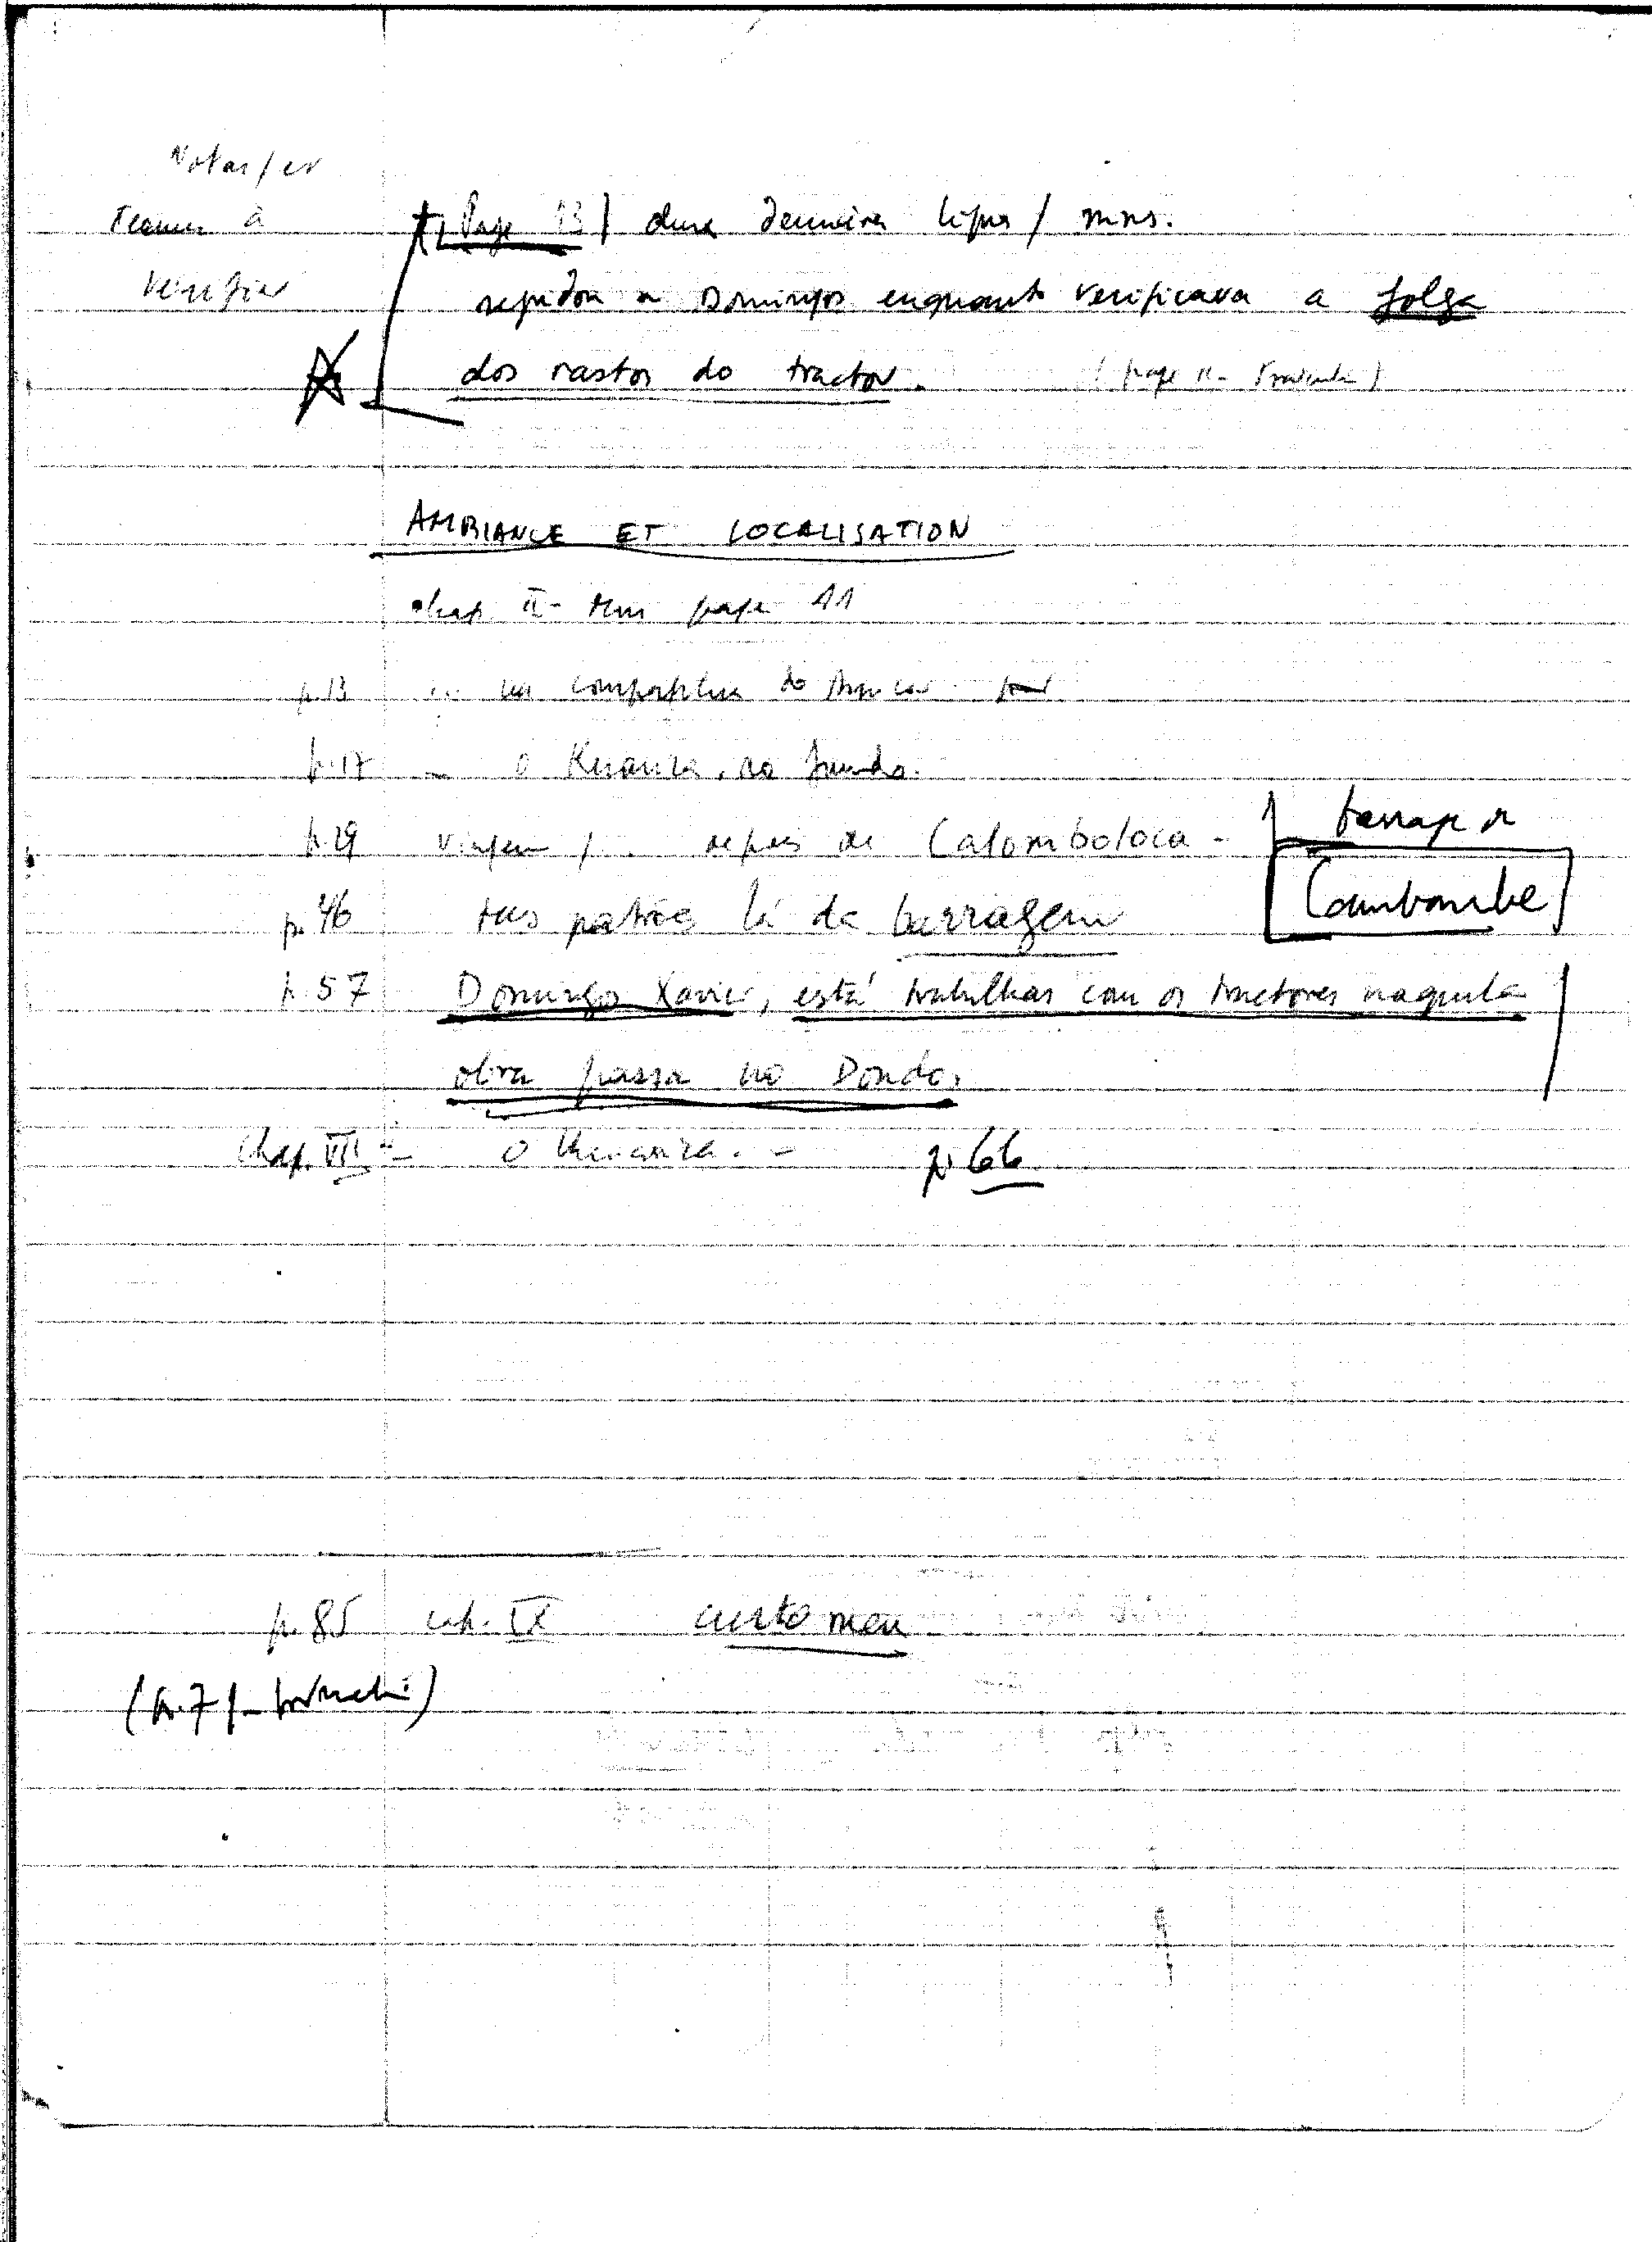 Notas / et
Termes à
vérifier
Page 13 / deux dernières lignes / mns.
Domingos enquanto verificava a folga
dos rastos do tractor.
AMBIANCE ET LOCALISATION
chap. II - page 11
p.13 ...
p.17 - o Kuanza, no fundo.
p.29 viagem / .. depois de Calomboloca -
barragem
Cambambe
p.46 teus patrão lá da barragem
p.57 Domingos Xavier, está trabalhar com os tractores naquela
obra passa no Dondo,
Chap. VIII - o Kuanza. - p. 66
p.85 cap. IX custo meu